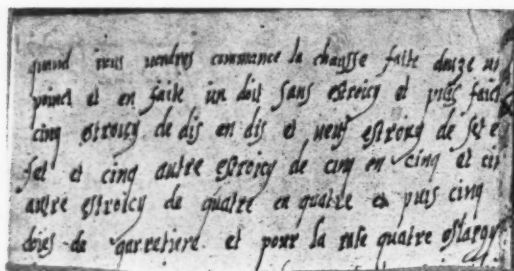 quand vous vendres commance la chausse faite douze
poinct et en faite un doit sans estroicy et puis faict
cinq estroicy de dis en dis et neuf estroicy de set e
set et cinq autre estroicy de cinq en cinq et ci
autre estroicy de quatre en quatre et puis cinq
dois de garretiere et pour la rase quatre eslargy